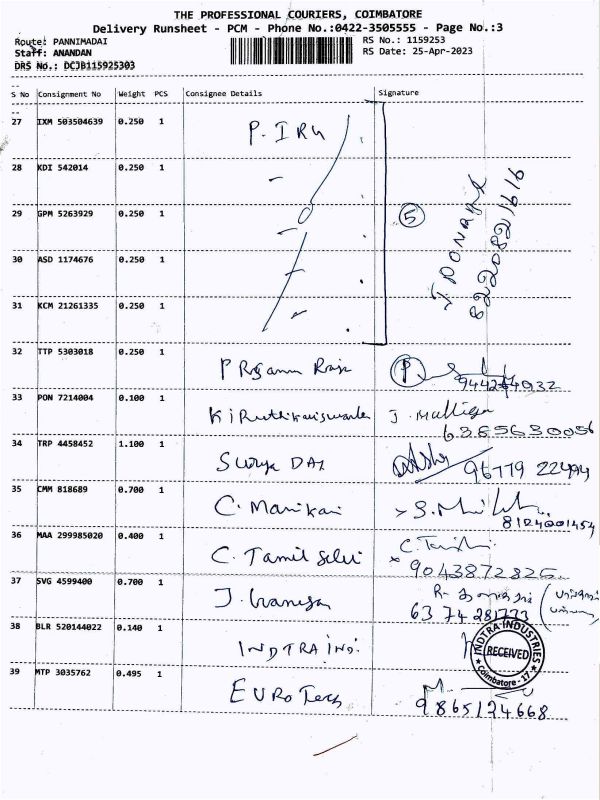 THE PROFESSIONAL COURIERS, COIMBATORE
Delivery Runsheet - PCM - Phone No.:0422-3505555 - Page No.:3
Route: PANNIMADAI
RS No.: 1159253
Staff: ANANDAN
RS Date: 25-Apr-2023
DRS No.: DCJB115925303
S No Consignment No Weight PCS Consignee Details Signature
27 IXM 503504639 0.250 1 P. IRU
28 KDI 542014 0.250 1
29 GPM 5263929 0.250 1 5
30 ASD 1174676 0.250 1
31 KCM 21261335 0.250 1
8220821616
32 TTP 5303018 0.250 1 P P
33 PON 7214004 0.100 1 J. Malliga
6385630056
34 TRP 4458452 1.100 1 Surya DAS 96779 22494
35 CMM 818689 0.700 1 C. Manikan
8124001454
36 MAA 299985020 0.400 1 C. Tamil Selvi
37 SVG 4599400 0.700 1 J. Ganesan
38 BLR 520144022 0.140 1 INDTRA IND.
INDTRA INDUSTRIES
RECEIVED
Coimbatore - 17
39 MTP 3035762 0.495 1 EURO Tech
9865124668